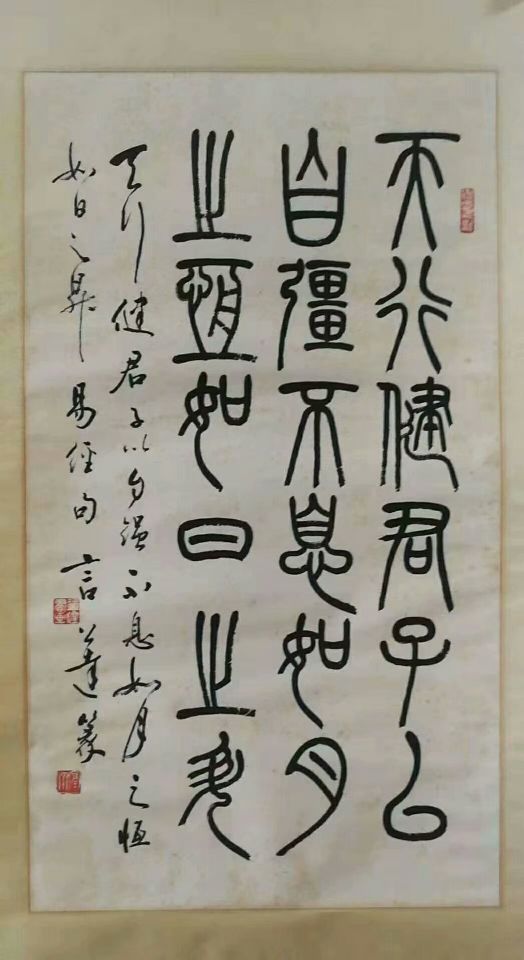 天行健君子以
自彊不息如月
之恆如日之升
天行健君子以自強不息如月之恒
如日之昇 易经句 言恭達篆